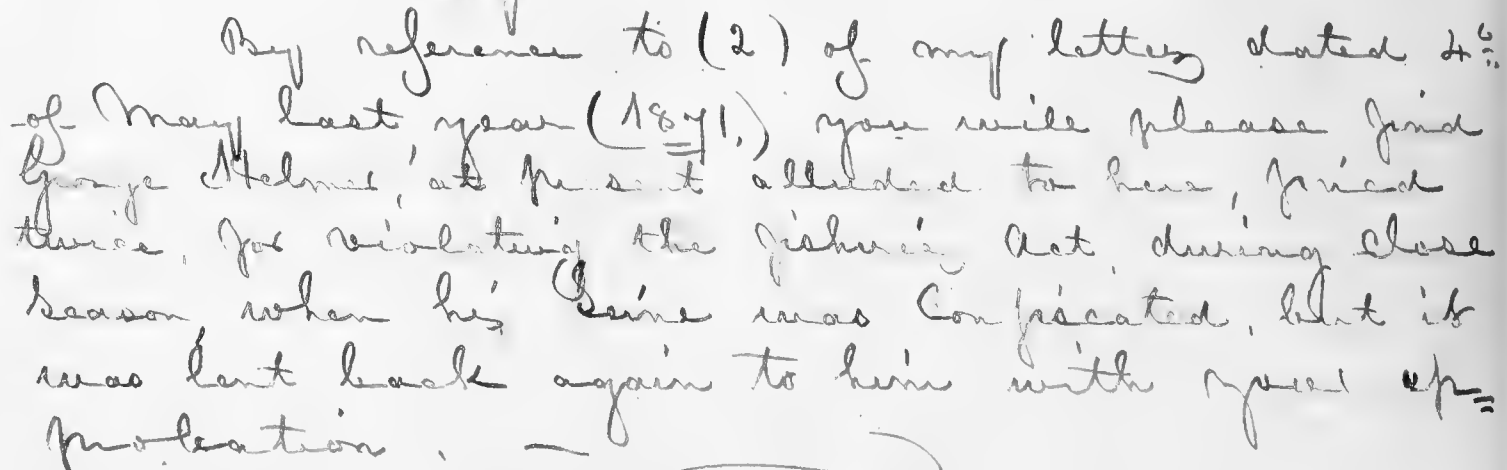 By reference to (2) of my letter dated 4th
of May last year (1871,) you will please find
George Helmer, at present alluded to here, fined
twice, for violating the fisheries Act, during Close
Season, when his Seine was Confiscated, but it
was lent back again to him with your ap=
probation. —